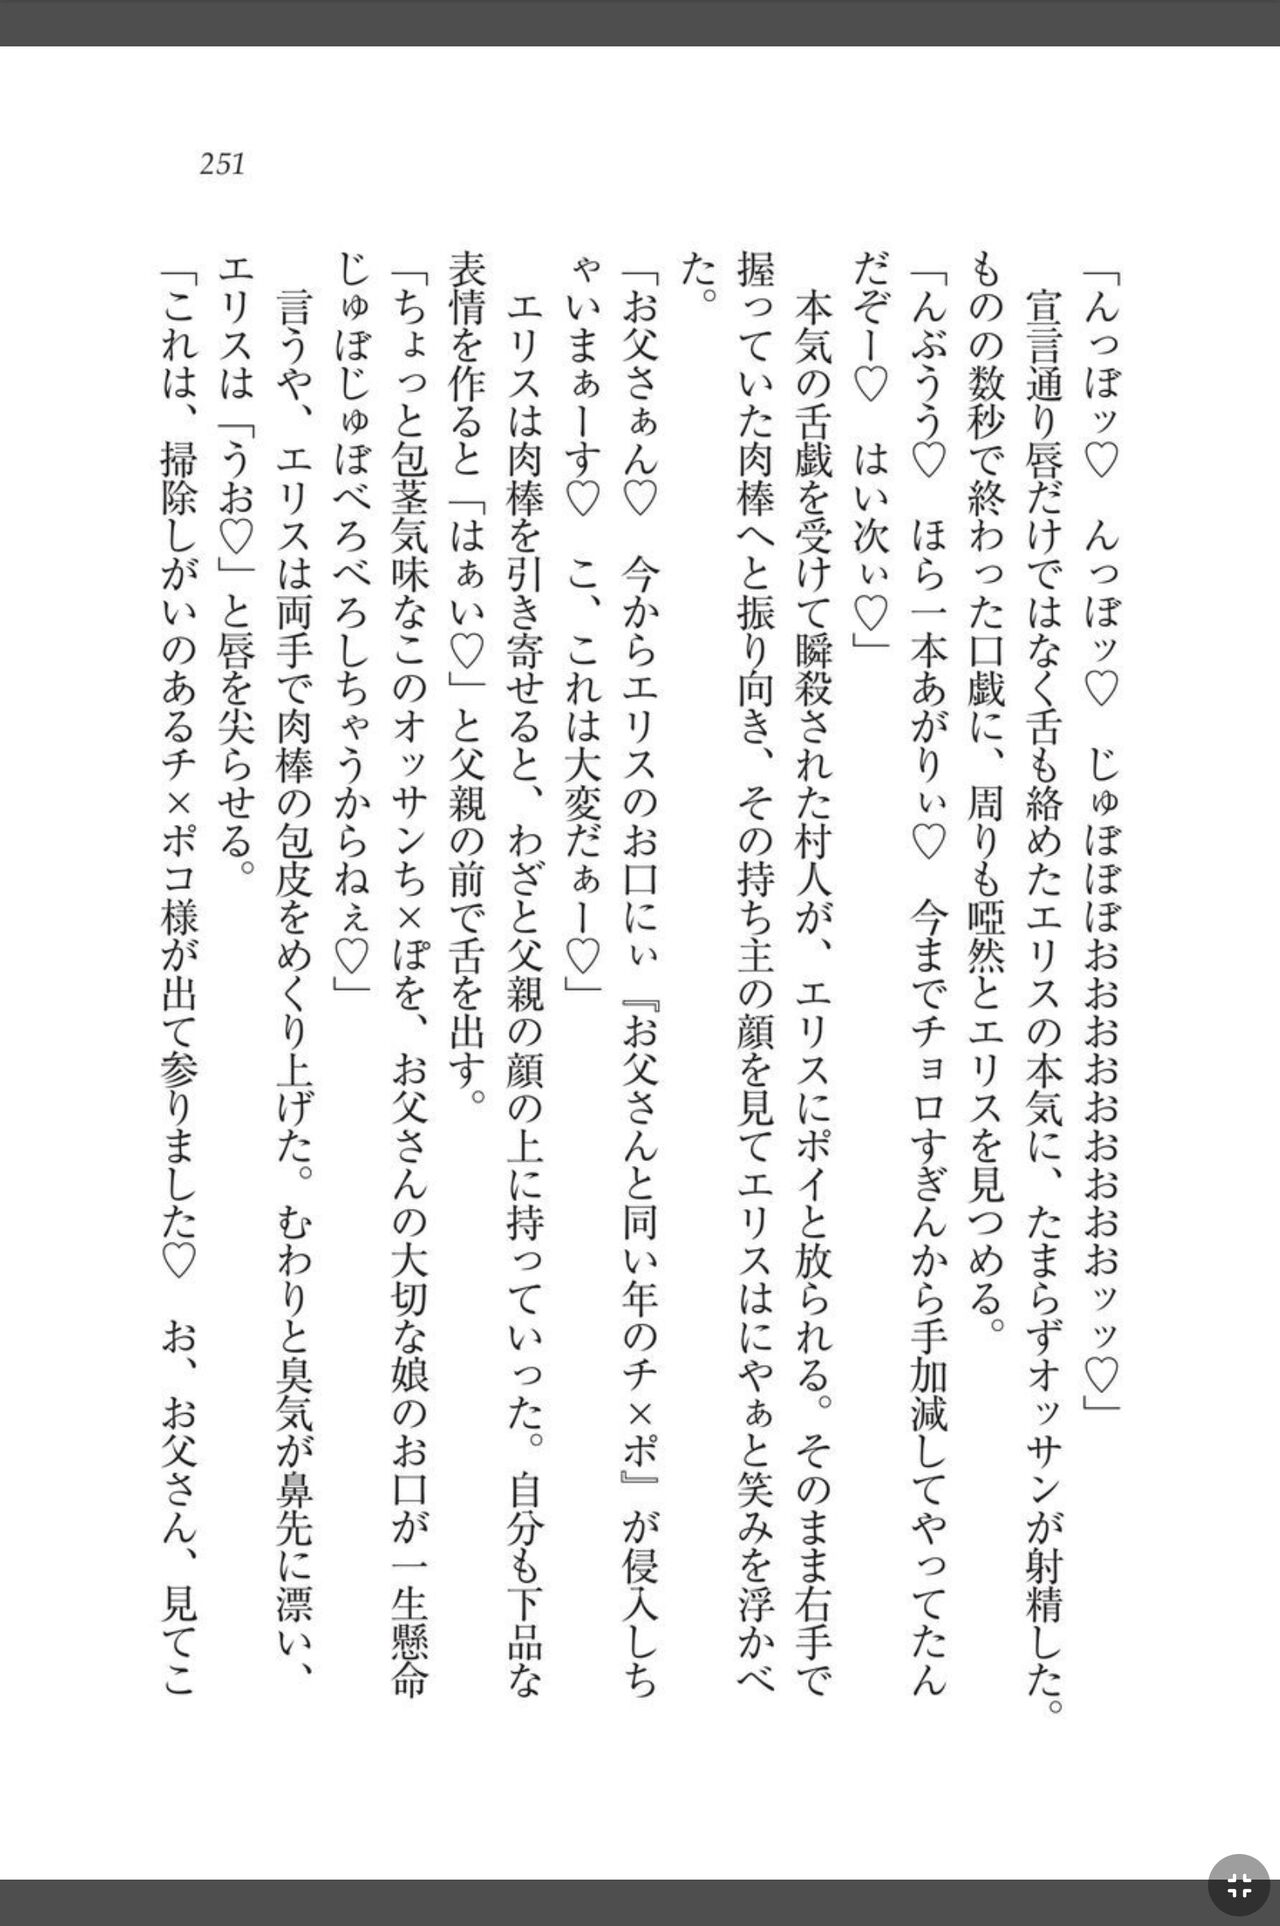 251
「んっぼッ♡　んっぼッ♡　じゅぼぼぼおおおおおおおおおッッ♡」
　宣言通り唇だけではなく舌も絡めたエリスの本気に、たまらずオッサンが射精した。
ものの数秒で終わった口戯に、周りも啞然とエリスを見つめる。
「んぶうう♡　ほら一本あがりぃ♡　今までチョロすぎんから手加減してやってたん
だぞー♡　はい次ぃ♡」
　本気の舌戯を受けて瞬殺された村人が、エリスにポイと放られる。そのまま右手で
握っていた肉棒へと振り向き、その持ち主の顔を見てエリスはにやぁと笑みを浮かべ
た。
「お父さぁん♡　今からエリスのお口にぃ『お父さんと同い年のチ×ポ』が侵入しち
ゃいまぁーす♡　こ、これは大変だぁー♡」
　エリスは肉棒を引き寄せると、わざと父親の顔の上に持っていった。自分も下品な
表情を作ると「はぁい♡」と父親の前で舌を出す。
「ちょっと包茎気味なこのオッサンち×ぽを、お父さんの大切な娘のお口が一生懸命
じゅぼじゅぼべろべろしちゃうからねぇ♡」
　言うや、エリスは両手で肉棒の包皮をめくり上げた。むわりと臭気が鼻先に漂い、
エリスは「うお♡」と唇を尖らせる。
「これは、掃除しがいのあるチ×ポコ様が出て参りました♡　お、お父さん、見てこ